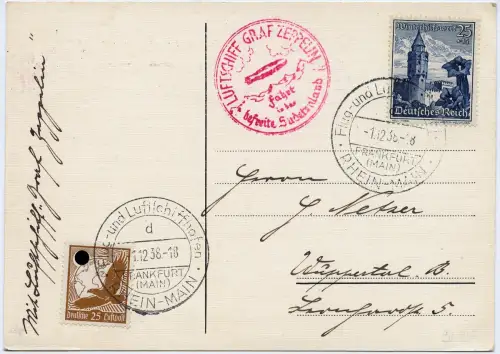 Mit Luftschiff Graf Zeppelin
LUFTSCHIFF GRAF ZEPPELIN
Fahrt
in das
befreite Sudetenland
Winterhilfswerk
25
Deutsches Reich
Flug- und Luft
-1.12.38.-18
FRANKFURT
(MAIN)
RHEIN-MAIN
Herrn
G. Netzer
Wuppertal. B.
5.
und Luftschiffhafen
d
1.12.38.-18
FRANKFURT
(MAIN)
RHEIN-MAIN
Deutsche 25 Luftpost